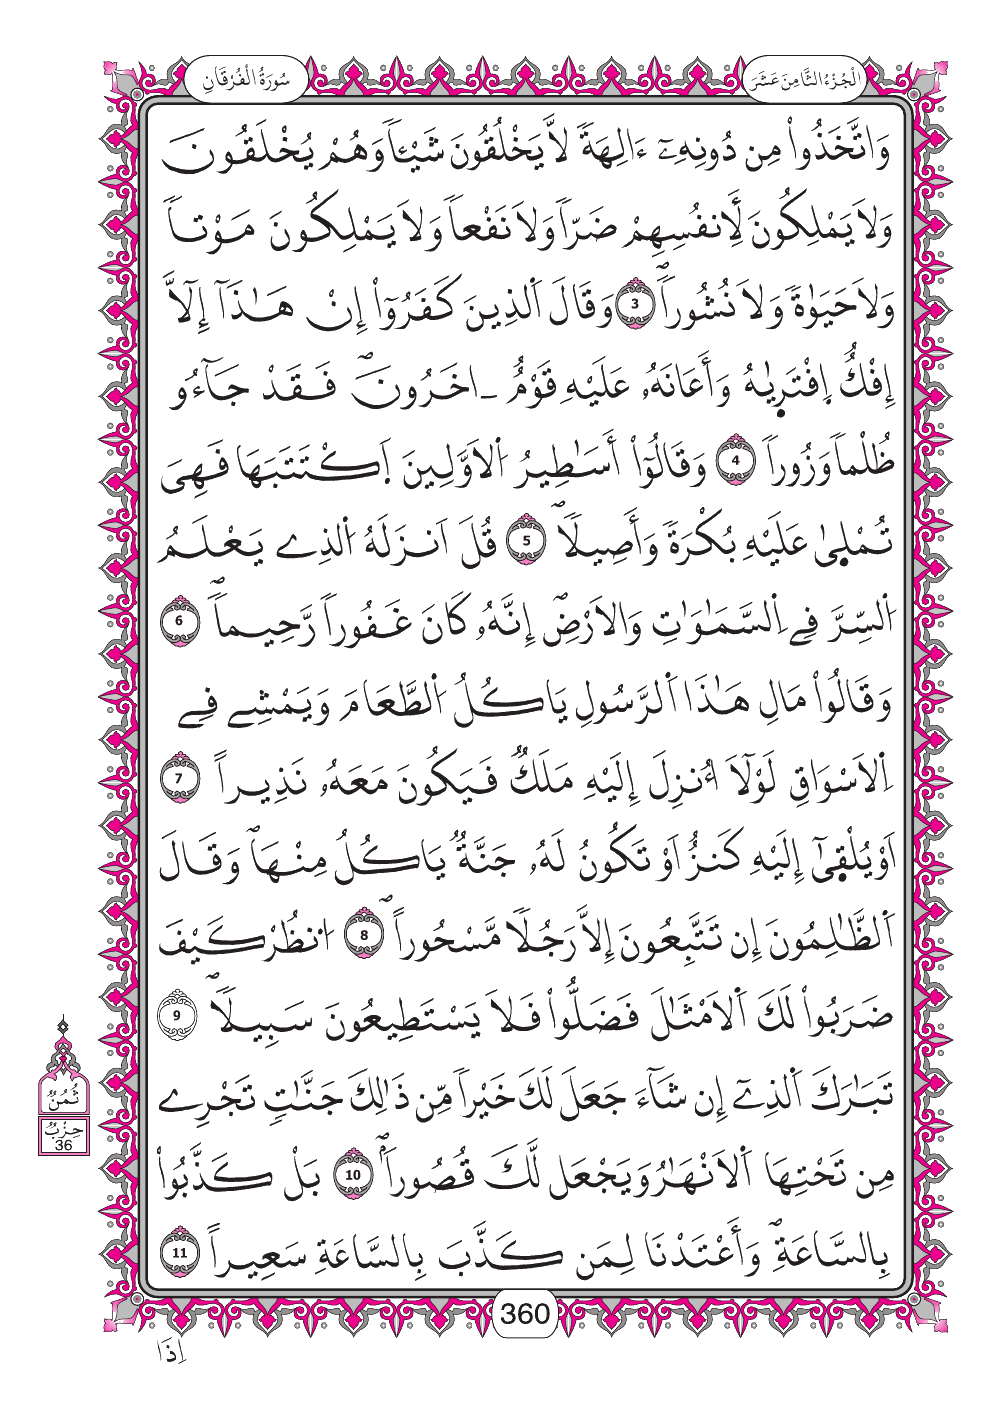 سُورَةُ الْفُرْقَانِ
الْجُزْءُ الثَّامِنَ عَشَرَ
وَاتَّخَذُواْ مِن دُونِهِۦٓ ءَالِهَةٗ لَّا يَخْلُقُونَ شَيْـٔاٗ وَهُمْ يُخْلَقُونَ
وَلَا يَمْلِكُونَ لِأَنفُسِهِمْ ضَرّاٗ وَلَا نَفْعاٗ وَلَا يَمْلِكُونَ مَوْتاٗ
وَلَا حَيَوٰةٗ وَلَا نُشُوراٗۖ 3 وَقَالَ اَ۬لذِينَ كَفَرُوٓاْ إِنْ هَٰذَآ إِلَّآ
إِفْكٌ اِ۪فْتَر۪يٰهُ وَأَعَانَهُۥ عَلَيْهِ قَوْمٌ ـ اخَرُونَۖ فَقَدْ جَآءُو
ظُلْماٗ وَزُوراٗ 4 وَقَالُوٓاْ أَسَٰطِيرُ اُ۬لَاوَّلِينَ اَ۪كْتَتَبَهَا فَهِيَ
تُمْل۪يٰ عَلَيْهِ بُكْرَةٗ وَأَصِيلاٗۖ 5 قُلَ اَنزَلَهُ اُ۬لذِے يَعْلَمُ
اُ۬لسِّرَّ فِے اِ۬لسَّمَٰوَٰتِ وَالَارْضِۖ إِنَّهُۥ كَانَ غَفُوراٗ رَّحِيماٗۖ 6
وَقَالُواْ مَالِ هَٰذَا اَ۬لرَّسُولِ يَاكُلُ اُ۬لطَّعَامَ وَيَمْشِے فِے
اِ۬لَاسْوَاقِ لَوْلَآ أُنزِلَ إِلَيْهِ مَلَكٌ فَيَكُونَ مَعَهُۥ نَذِيراً 7
اَوْ يُلْق۪يٰٓ إِلَيْهِ كَنزٌ اَوْ تَكُونُ لَهُۥ جَنَّةٌ يَاكُلُ مِنْهَاۖ وَقَالَ
اَ۬لظَّٰلِمُونَ إِن تَتَّبِعُونَ إِلَّا رَجُلاٗ مَّسْحُوراًۖ 8 اُ۟نظُرْ كَيْفَ
ضَرَبُواْ لَكَ اَ۬لَامْثَٰلَ فَضَلُّواْ فَلَا يَسْتَطِيعُونَ سَبِيلاٗۖ 9
تَبَٰرَكَ اَ۬لذِےٓ إِن شَآءَ جَعَلَ لَكَ خَيْراٗ مِّن ذَٰلِكَ جَنَّٰتٖ تَجْرِے
مِن تَحْتِهَا اَ۬لَانْهَٰرُ وَيَجْعَل لَّكَ قُصُوراَۢۖ 10 بَلْ كَذَّبُواْ
بِالسَّاعَةِۖ وَأَعْتَدْنَا لِمَن كَذَّبَ بِالسَّاعَةِ سَعِيراً 11
ثُمُنٌ
حِزْبٌ
36
360
إِذَا